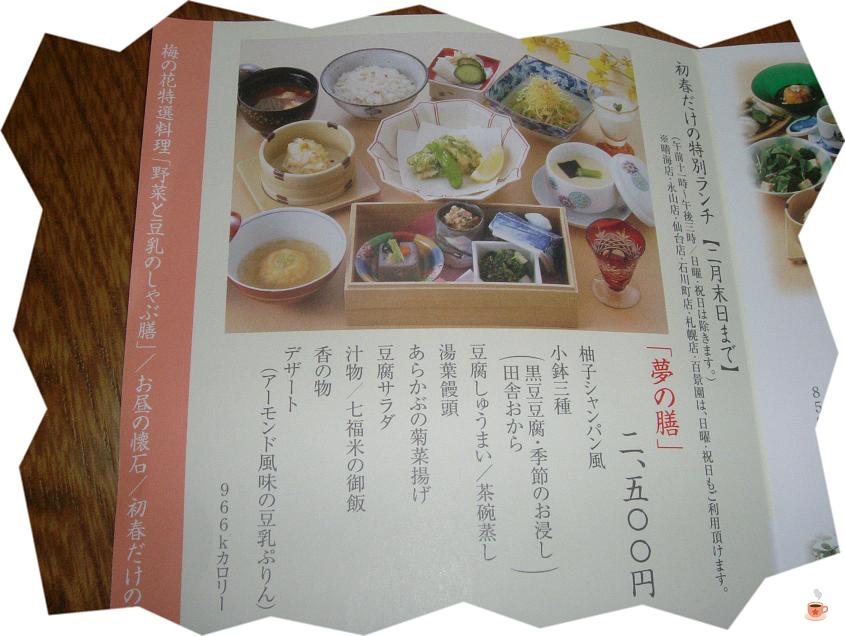 初春だけの特別ランチ【二月末日まで】
(午前十一時～午後三時／日曜・祝日は除きます。)
※晴海店・永山店・仙台店・石川町店・札幌店・百景園は、日曜・祝日もご利用頂けます。
「夢の膳」
二、五〇〇円
柚子シャンパン風
小鉢三種
(黒豆豆腐・季節のお浸し
田舎おから)
豆腐しゅうまい／茶碗蒸し
湯葉饅頭
あらかぶの菊菜揚げ
豆腐サラダ
汁物／七福米の御飯
香の物
デザート
(アーモンド風味の豆乳ぷりん)
966kカロリー
梅の花特選料理「野菜と豆乳のしゃぶ膳」／お昼の懐石／初春だけの
85